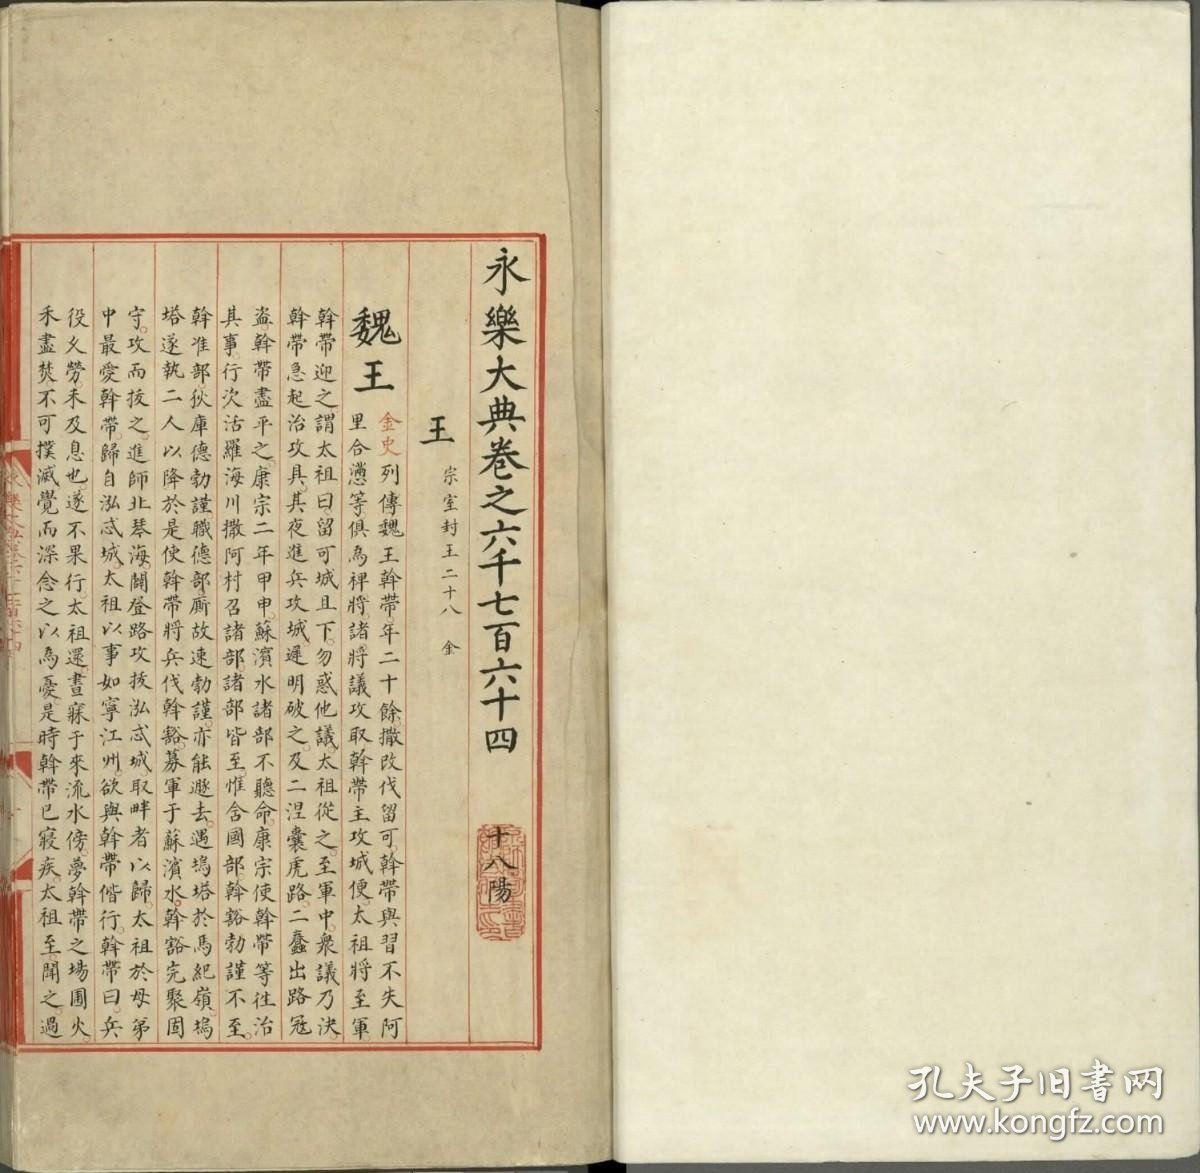 永樂大典卷之六千七百六十四
十八陽
王
宗室封王二十八 金
魏王
金史列傳魏王斡帶。年二十餘。撒改伐留可。斡帶與習不失阿
里合懣等。俱為裨將。諸將議攻取。斡帶主攻城便。太祖將至軍。
斡帶迎之。謂太祖曰。留可城且下。勿惑他議。太祖從之。至軍中。衆議乃決。
斡帶急起治攻具。其夜進兵攻城。遲明破之。及二涅囊虎路。二蠢出路冦
盗。斡帶盡平之。康宗二年甲申。蘇濱水諸部不聽命。康宗使斡帶等往治
其事。行次活羅海川撒阿村召諸部。諸部皆至。惟含國部斡豁勃謹不至。
斡准部狄庫德勃謹職德部厮故速勃謹。亦能遯去。遇塢塔於馬紀嶺。塢
塔遂執二人以降於是使斡帶將兵伐斡豁。募軍于蘇濱水。斡豁完聚固
守。攻而拔之。進師北琴海。闢登路攻拔泓忒城。取畔者以歸。太祖於母弟
中最愛斡帶。歸自泓忒城。太祖以事如寧江州。欲與斡帶偕行。斡帶曰。兵
役久勞未及息也。遂不果行。太祖還。晝寐于來流水傍。夢斡帶之場圃火。
禾盡焚不可撲滅覺而深念之以為憂。是時斡帶已寢疾。太祖至。聞之。過
孔夫子旧书网
www.kongfz.com